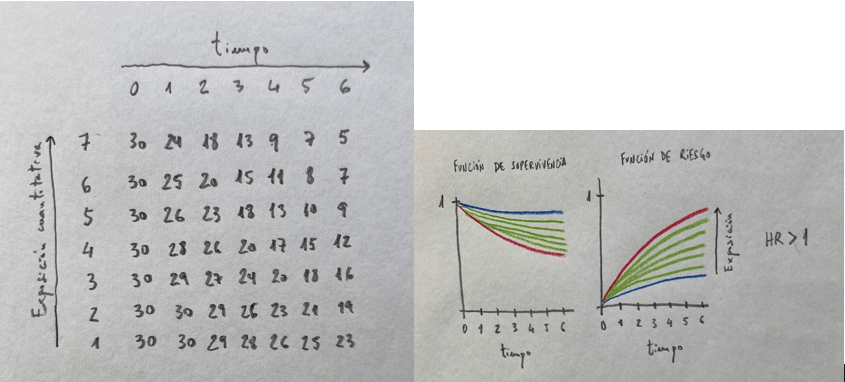 tiempo
0 1 2 3 4 5 6
Exposición cuantitativa
7 30 24 18 13 9 7 5
6 30 25 20 15 11 8 7
5 30 26 23 18 13 10 9
4 30 28 26 20 17 15 12
3 30 29 27 24 20 18 16
2 30 30 29 26 23 21 19
1 30 30 29 28 26 25 23
FUNCIÓN DE SUPERVIVENCIA
1
0 1 2 3 4 5 6
tiempo
FUNCIÓN DE RIESGO
1
0 1 2 3 4 5 6
tiempo
Exposición
HR > 1